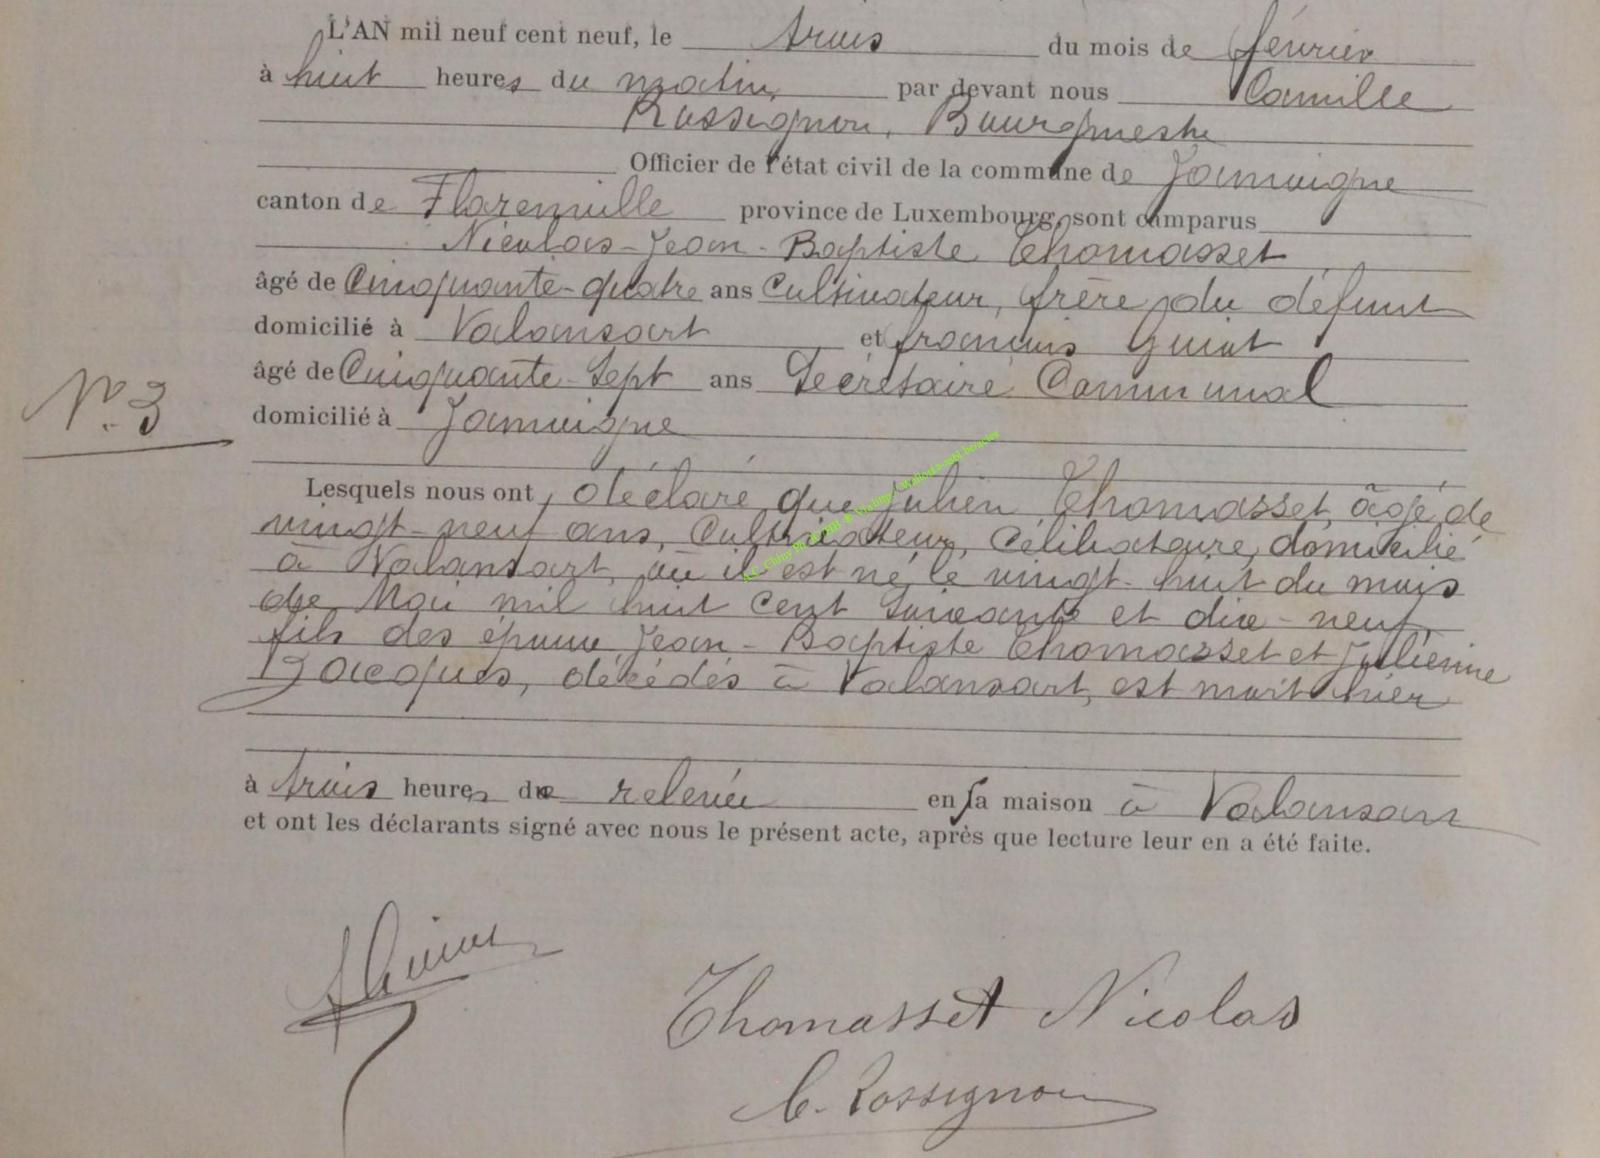 L'AN mil neuf cent neuf, le trois du mois de février
à huit heures du matin, par devant nous Camille
Rossignon, Bourgmestre
Officier de l'état civil de la commune de Jamoigne
canton de Florenville province de Luxembourg, sont comparus
Nicolas-Jean-Baptiste Thomasset
âgé de Cinquante-quatre ans Cultivateur, frère du défunt
domicilié à Valansart et françois Guiot
âgé de Cinquante-Sept ans Secrétaire Communal
N° 3
domicilié à Jamoigne
Lesquels nous ont déclaré que Julien Thomasset, âgé de
vingt-neuf ans, Cultivateur, Célibataire, domicilié
à Valansart, où il est né le vingt-huit du mois
de Mai mil huit cent soixante et dix-neuf,
fils des époux Jean-Baptiste Thomasset et Julienne
Jacques, décédés à Valansart, est mort hier
à trois heures de relevée en sa maison à Valansart
et ont les déclarants signé avec nous le présent acte, après que lecture leur en a été faite.
Thomasset Nicolas
C. Rossignon